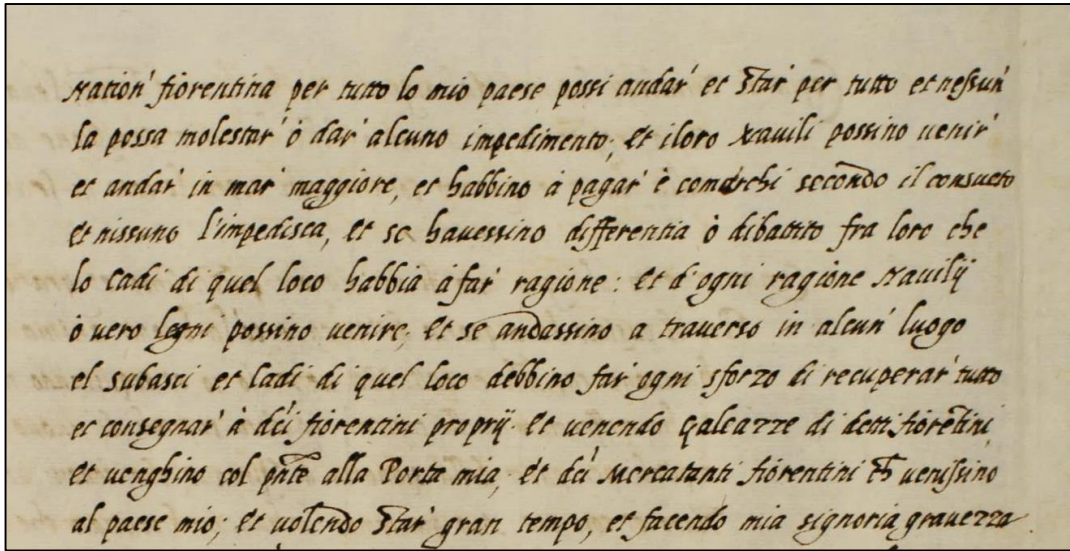 Nation' fiorentina per tutto lo mio paese possi andar' et star' per tutto et nessun'
la possa molestar' ò dar' alcuno impedimento; et iloro Navili possino uenir'
et andar' in mar' maggiore, et habbino à pagar' è comarchi secondo il consueto
et nissuno l'impedisca, et se hauessino differentia ò dibattito fra loro che
lo Cadi di quel loco habbia à far' ragione: et d'ogni ragione Nauilij
ò uero legni possino uenire; et se andassino a trauerso in alcun' luogo
el subasci et Cadi di quel loco debbino far' ogni sforzo di recuperar' tutto
et consegnar' à dti fiorentini proprij. et uenendo Galeazze di detti fiorētini
et uenghino col pnte alla Porta mia, et dti Mercatanti fiorentini ch uenissino
al paese mio; et uolendo star' gran tempo, et facendo mia signoria grauezza